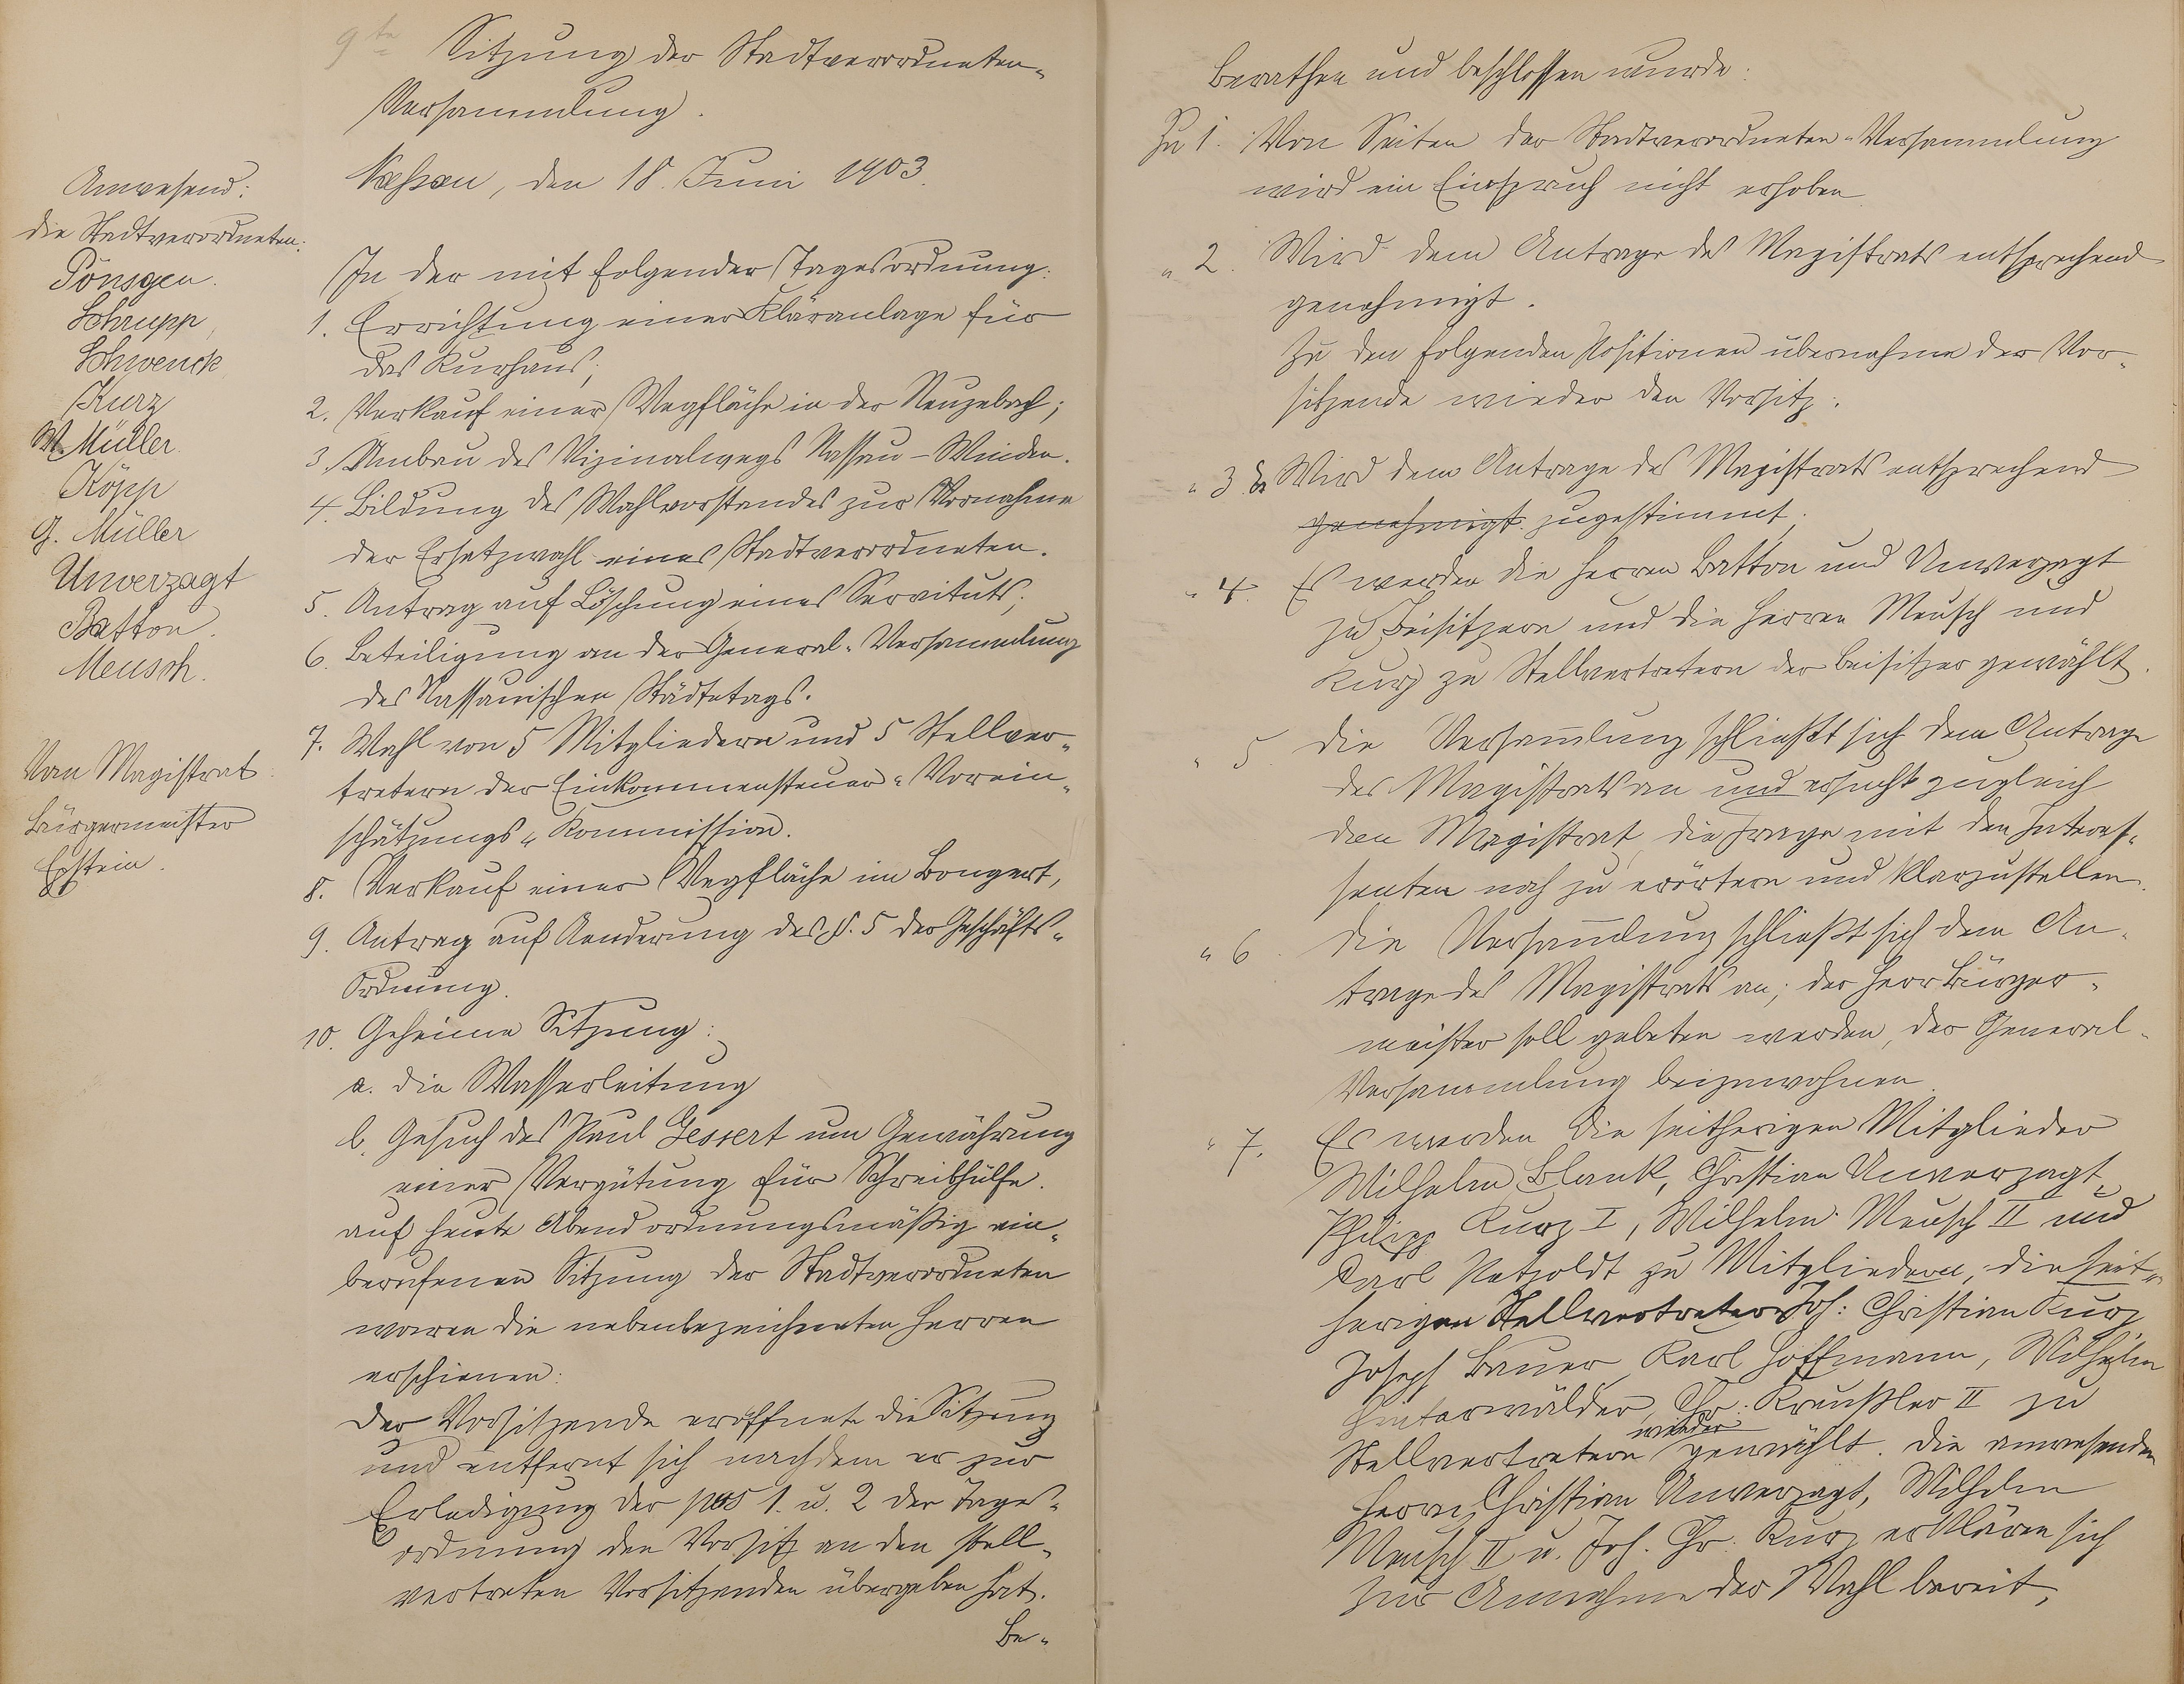 9te Sitzung der Stadtverordneten-
Versammlung.
Nassau, den 18. Juni 1903.
Anwesend:
die Stadtverordneten:
Pönsgen.
Schrupp,
Schwenck
Kurz
W. Müller
Köpp
G. Müller
Unverzagt
Batton.
Meusch.
Vom Magistrat:
Bürgermeister
In der mit folgender Tagesordnung:
1. Errichtung einer Kläranlage für
das Kurhaus;
2. Verkauf einer Wegfläche in der Neuzebach;
3. Umbau des Vizinalwegs Nassau-Winden.
4. Bildung des Wahlvorstandes zur Vornahme
der Ersatzwahl eines Stadtverordneten.
5. Antrag auf Löschung eines Servituts;
6. Beteiligung an der General-Versammlung
des Nassauischen Städtetags.
7. Wahl von 5 Mitgliedern und 5 Stellver-
tretern der Einkommensteuer-Vorein-
schätzungs-Kommission.
8. Verkauf einer Wegfläche im Bongert,
9. Antrag auf Aenderung des §. 5 der Geschäfts-
Ordnung.
10. Geheime Sitzung:
a. die Wasserleitung
b. Gesuch des Paul Gessert um Gewährung
einer Vergütung für Schreibhülfe.
auf heute Abend ordnungsmäßig ein-
berufenen Sitzung der Stadtverordneten
waren die nebenbezeichneten Herren
erschienen:
Der Vorsitzende eröffnete die Sitzung
und entfernt sich nachdem er zur
Erledigung der pos 1. u. 2 der Tages-
ordnung den Vorsitz an den stell-
vertreten Vorsitzenden übergeben hat.
Be-
berathen und beschlossen wurde:
Zu 1. Von Seiten der Stadtverordneten-Versammlung
wird ein Einspruch nicht erhoben
" 2. Wird dem Antrage des Magistrats entsprechend
genehmigt.
Zu den folgenden Positionen übernahm der Vor-
sitzende wieder den Vorsitz.
" 3. Wird dem Antrage des Magistrats entsprechend
genehmigt zugestimmt.
" 4 Es werden die Herren Batton und Unverzagt
zu Beisitzern und die Herren Meusch und
Kurz zu Stellvertretern der Beisitzer gewählt.
" 5 Die Versammlung schließt sich dem Antrage
des Magistrats an und ersucht zugleich
den Magistrat, die Frage mit den Interes-
senten noch zu erörtern und klarzustellen.
" 6 Die Versammlung schließt sich dem An-
trage des Magistrats an; der Herr Bürger-
meister soll gebeten werden, der General-
Versammlung beizuwohnen.
" 7. Es werden die seitherigen Mitglieder
Wilhelm Blank, Christian Unverzagt,
Philipp Kurz I, Wilhelm Meusch II und
Carl Patzoldt zu Mitgliedern, die seit-
herigen Stellvertreter Joh: Christian Kurz
Joseph Bauer Karl Hoffmann, Wilhelm
Hinterwälder, Chr. Kreußler II zu
Stellvertretern wieder gewählt. Die anwesenden
Herrn Christian Unverzagt, Wilhelm
Meusch II u. Joh. Chr. Kurz erklären sich
zur Annahme der Wahl bereit,